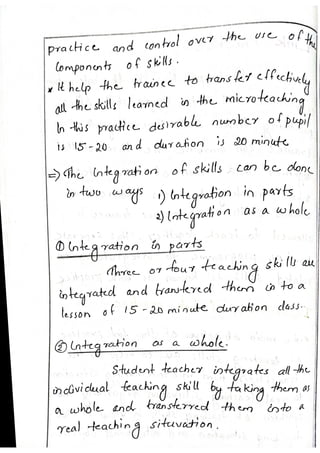 practice and control over the use of the
Components of skills.
* It help the trainee to transfer effectively
all the skills learned in the microteaching
In this practice desirable number of pupil
is 15-20 and duration is 20 minute
=> The integration of skills can be done
in two ways 1) Integration in parts
2) Integration as a whole
① Integration in parts
Three or four teaching skills are
integrated and transfered them in to a
lesson of 15-20 minute duration class.
② Integration as a whole.
Student teacher integrates all the
individual teaching skill by taking them as
a whole and transferred them into a
real teaching situvation.